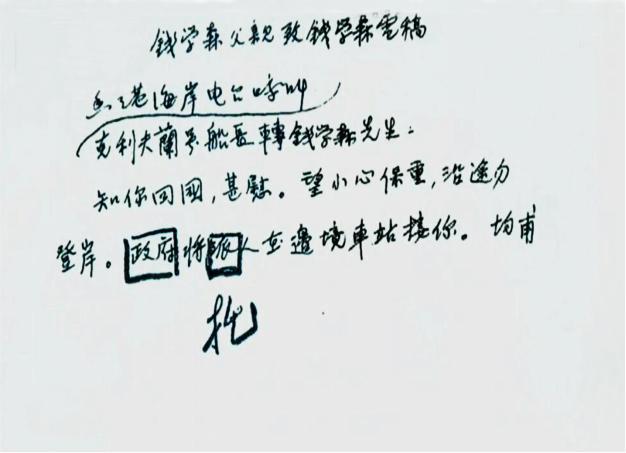 錢学森父親致錢学森電稿
香港海岸电台呼叫
克利夫蘭号船長轉錢学森先生：
知你回國，甚慰。望小心保重，沿途勿
登岸。政府将派人在邊境車站接你。均甫
托